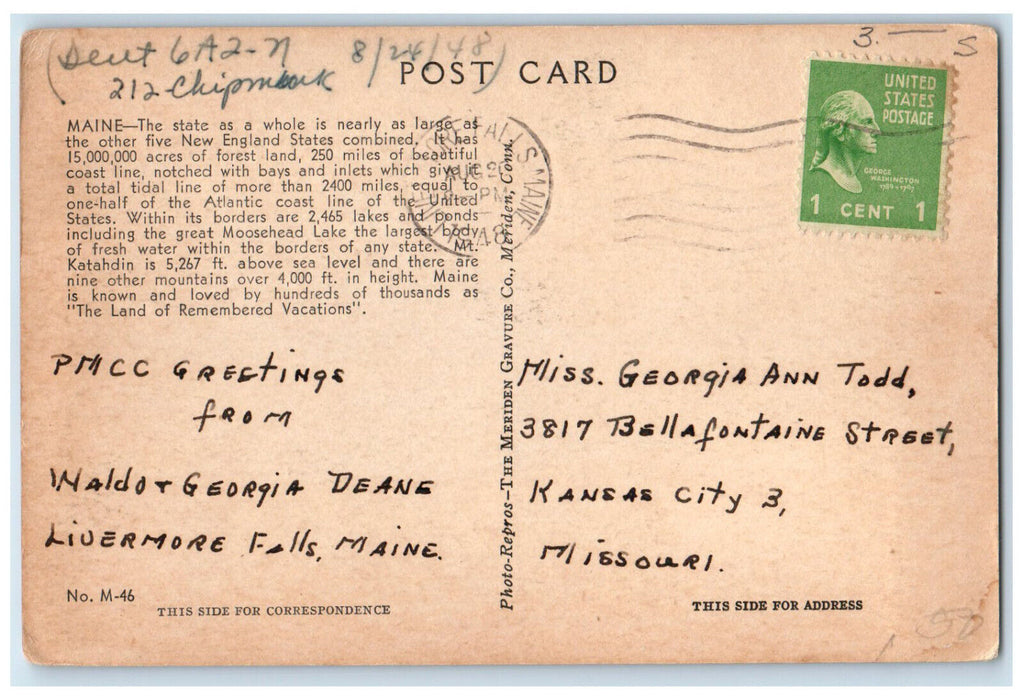 (Sent 6A2-N 8/24/48)
212-Chipmunk
POST CARD
3.— S
UNITED
STATES
POSTAGE
GEORGE
WASHINGTON
1789-1797
1 CENT 1
LIVERMORE FALLS MAINE
AUG 20
PM
1948
MAINE—The state as a whole is nearly as large as
the other five New England States combined. It has
15,000,000 acres of forest land, 250 miles of beautiful
coast line, notched with bays and inlets which give it
a total tidal line of more than 2400 miles, equal to
one-half of the Atlantic coast line of the United
States. Within its borders are 2,465 lakes and ponds
including the great Moosehead Lake the largest body
of fresh water within the borders of any state. Mt.
Katahdin is 5,267 ft. above sea level and there are
nine other mountains over 4,000 ft. in height. Maine
is known and loved by hundreds of thousands as
"The Land of Remembered Vacations".
PMCC GREETINGS
FROM
Waldo & GEORGIA DEANE
LIVERMORE Falls, MAINE.
No. M-46
THIS SIDE FOR CORRESPONDENCE
Photo-Repros—THE MERIDEN GRAVURE CO., Meriden, Conn.
Miss. GEORGIA ANN Todd,
3817 BellafontAINE STREET,
KANSAS City 3,
MISSOURI.
THIS SIDE FOR ADDRESS